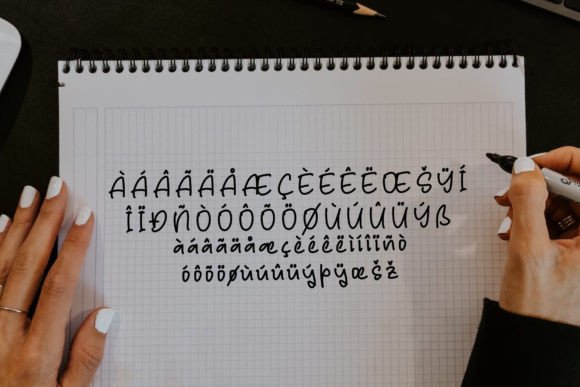 ÀÁÂÃÄÅÆÇÈÉÊËŒŠŸÍ
ÎÏÐÑÒÓÔÕÖØÙÚÛÜÝß
àáâãäåæçèéêëìíîïñò
óôõöøùúûüýþÿœšž